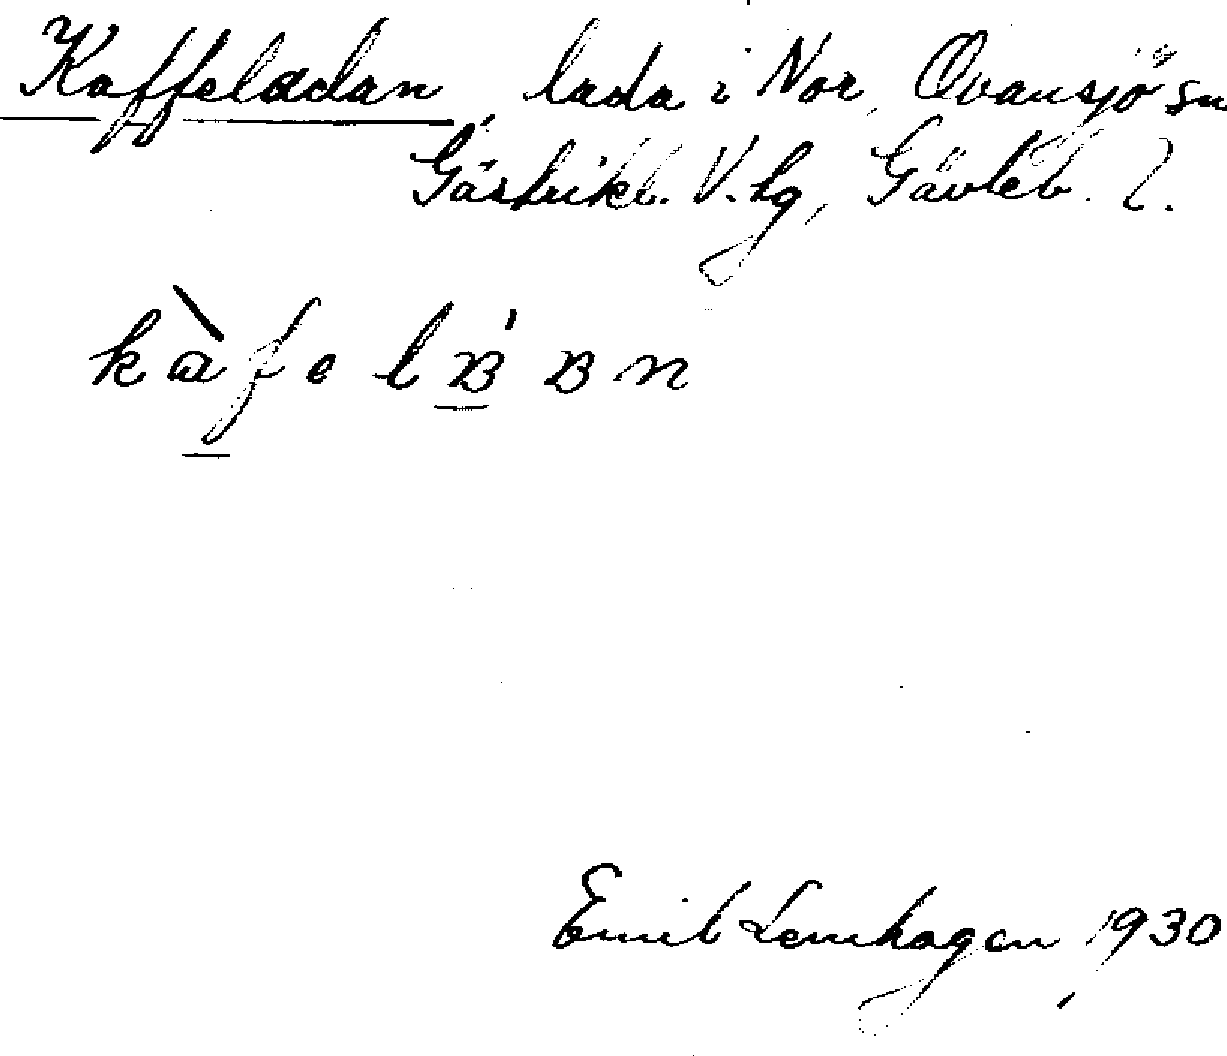 Kaffeladan, lada i Nor, Ovansjö sn
Gästrikl. V. hg, Gävleb. l.
kàfelʙ́ʙn
Emil Lemhagen, 1930